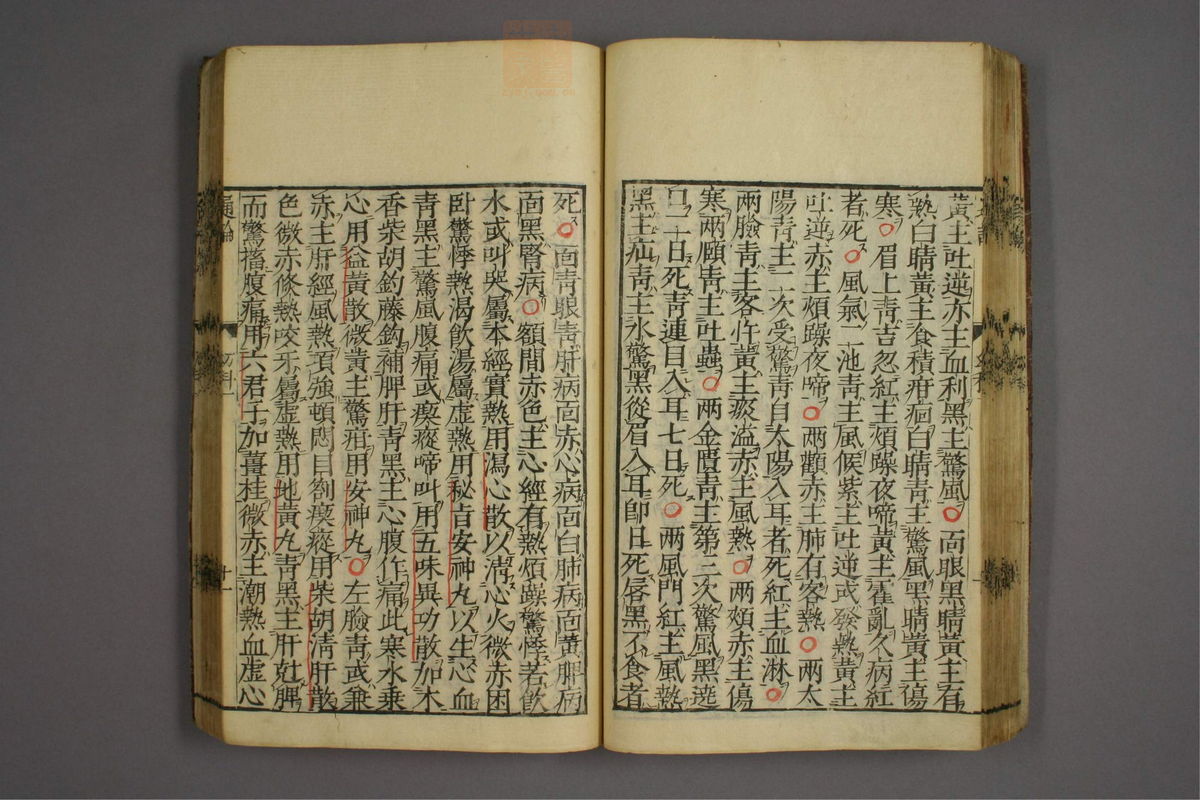 黃主吐逆亦主血利黑主驚風○面眼黑睛黃主有
熱白睛黃主食積疳痼白睛靑主驚風黑睛黃主傷
寒○眉上靑吉忽紅主煩躁夜啼黃主霍亂久病紅
者死○風氣二池靑主風候紫主吐逆或發熱黃主
吐逆赤主煩躁夜啼○兩顴赤主肺有客熱○兩太
陽靑主二次受驚靑自太陽入耳者死紅主血淋○
兩臉靑主客忤黃主痰溢赤主風熱○兩頰赤主傷
寒兩頤靑主吐蟲○兩金匱靑主第三次驚風黑遶
口二日死靑連目入耳七日死○兩風門紅主風熱
黑主疝靑主水驚黑從眉入耳卽日死唇黑不食者
死○面靑眼靑肝病面赤心病面白肺病面黃脾病
面黑腎病○額間赤色主心經有熱煩躁驚悸若飮
水或叫哭屬本經實熱用瀉心散以淸心火微赤困
卧驚悸熱渴飮湯屬虛熱用秘旨安神丸以生心血
靑黑主驚風腹痛或瘈瘲啼叫用五味異功散加木
香柴胡釣藤鈎補脾肝靑黑主心腹作痛此寒水乘
心用益黃散微黃主驚疳用安神丸○左臉靑或兼
赤主肝經風熱項強頓悶目劄瘈瘲用柴胡淸肝散
色微赤倏熱咬牙屬虛熱用地黃丸靑黑主肝尅脾
而驚搐腹痛用六君子加薑桂微赤主潮熱血虛心
通論
十一